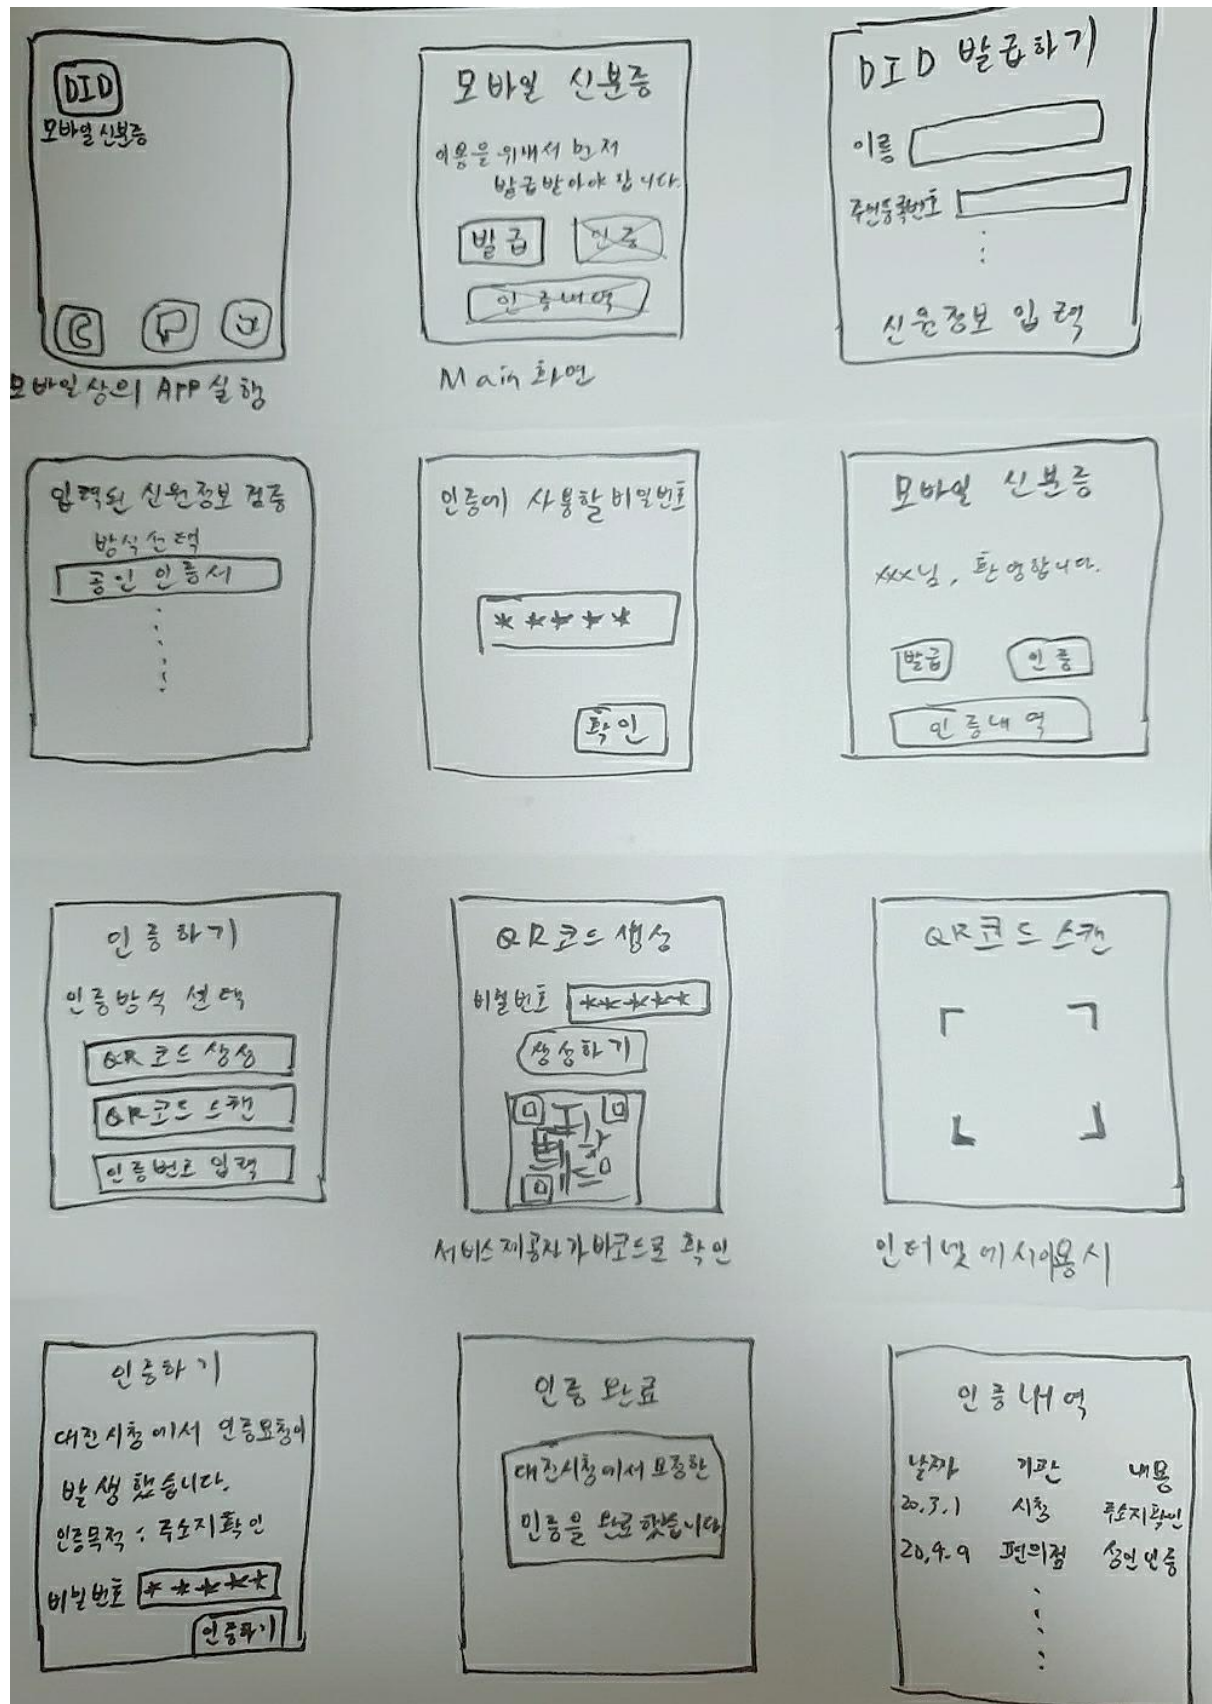 DID
모바일 신분증
모바일상의 APP 실행
모바일 신분증
이용을 위해서 먼저
발급받아야 합니다.
발급
인증
인증내역
Main 화면
DID 발급하기
이름
주민등록번호
신원정보 입력
입력된 신원정보 검증
방식선택
공인인증서
인증에 사용할 비밀번호
*****
확인
모바일 신분증
xxx님, 환영합니다.
발급
인증
인증내역
인증하기
인증방식 선택
QR코드 생성
QR코드 스캔
인증번호 입력
QR코드 생성
비밀번호 *****
생성하기
서비스제공자가 바코드로 확인
QR코드 스캔
인터넷에서 이용시
인증하기
대전시청에서 인증요청이
발생했습니다.
인증목적 : 주소지확인
비밀번호 *****
인증하기
인증 완료
대전시청에서 요청한
인증을 완료했습니다
인증내역
날짜 기관 내용
20.3.1 시청 주소지확인
20.4.9 편의점 성인인증